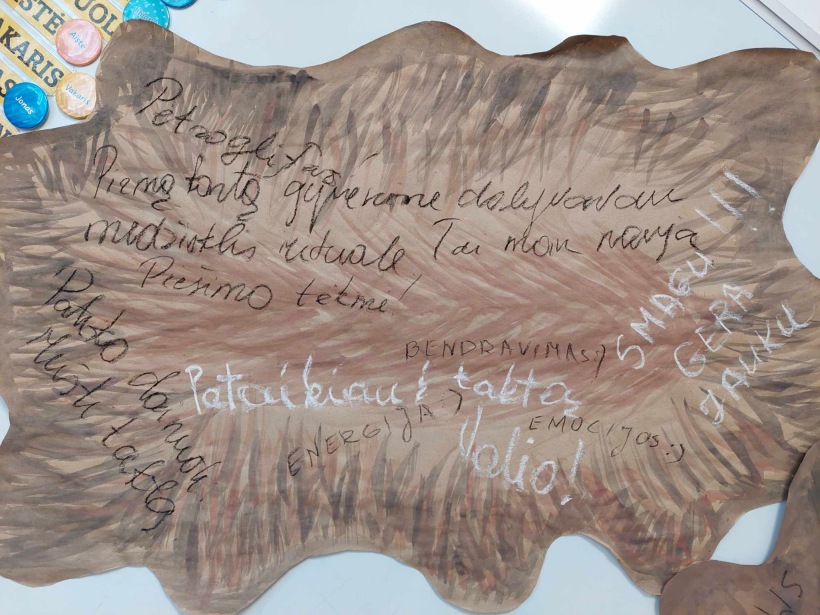 STĖ
UOL
AKARIS
AS
Aistė
Vakaris
Jonas
Petroglifas
Pirmą kartą gyvenime dalyvavau
medžioklės rituale. Tai man nauja
Piešimo tėkmė!
SMAGU!!!
GERA
JAUKU
BENDRAVIMAS:)
Patiko dainuoti.
Mušti taktą
Pataikiau į taktą
Valio!
ENERGIJA:)
EMOCIJOS:)